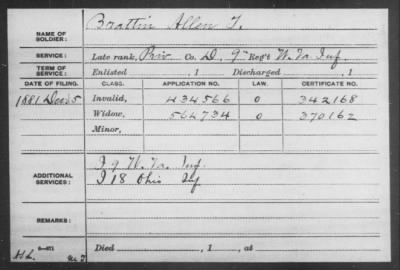 NAME OF SOLDIER: Brattin Allen T.
SERVICE: Late rank, Priv Co. D, 9" Reg't W. Va Inf.
TERM OF SERVICE: Enlisted , 1 Discharged , 1
DATE OF FILING. CLASS. APPLICATION NO. LAW. CERTIFICATE NO.
1881 Dec 5 Invalid, 434566 0 342168
Widow, 564734 0 370162
Minor,
ADDITIONAL SERVICES: I 9 W. Va. Inf.
I 18 Ohio Inf
REMARKS:
Died , 1 , at